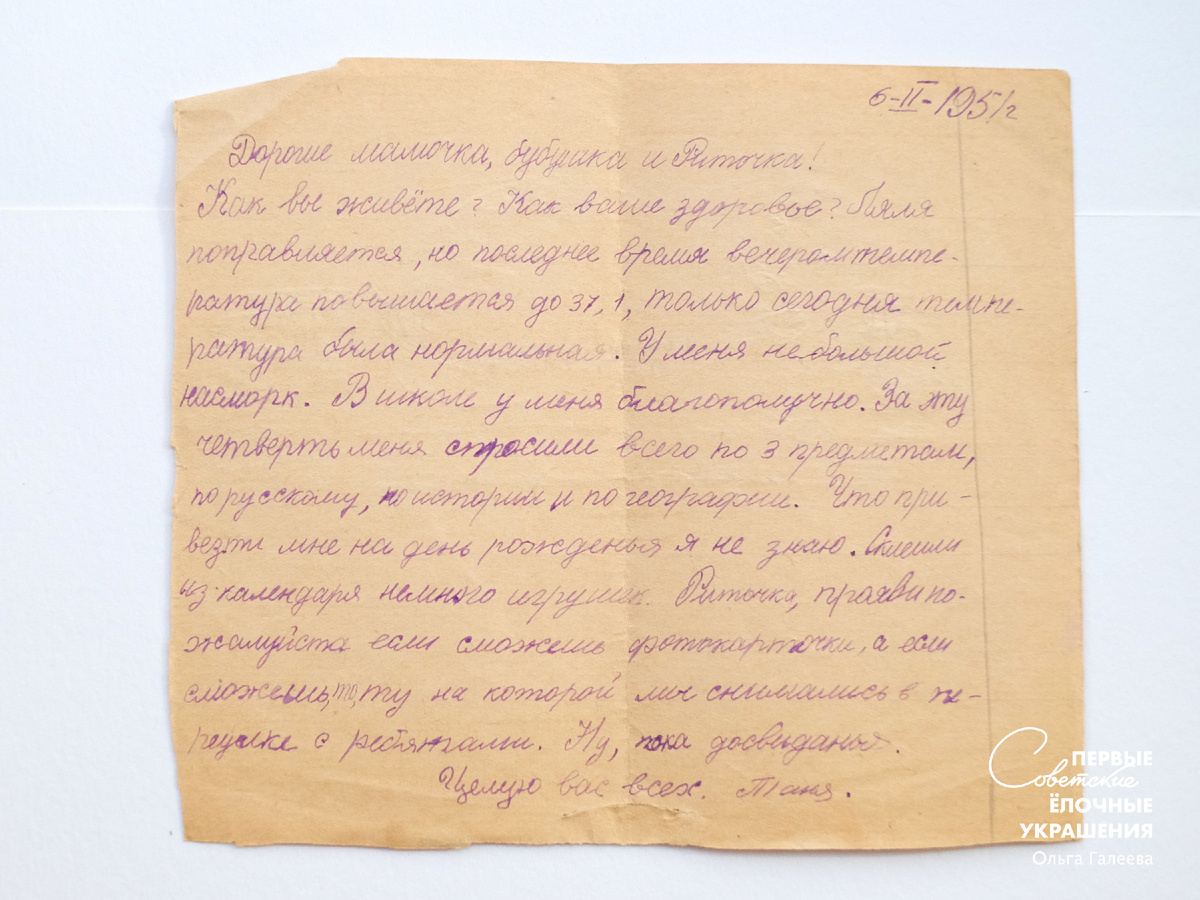 6-II-1951г
Дорогие мамочка, бубушка и Риточка!
Как вы живёте? Как ваше здоровье? Ляля
поправляется, но последнее время вечером темпе-
ратура повышается до 37,1, только сегодня темпе-
ратура была нормальная. У меня небольшой
насморк. В школе у меня благополучно. За эту
четверть меня спросили всего по 3 предметам,
по русскому, по истории и по географии. Что при-
везти мне на день рожденья я не знаю. Склеили
из календаря немного игрушек. Риточка, прояви по-
жалуйста если сможешь фотокарточки, а если
сможешь, то, ту на которой мы снимались в
с ребятами. Ну, пока досвиданья.
Целую вас всех. Таня.
ПЕРВЫЕ
Советские
ЁЛОЧНЫЕ
УКРАШЕНИЯ
Ольга Галеева